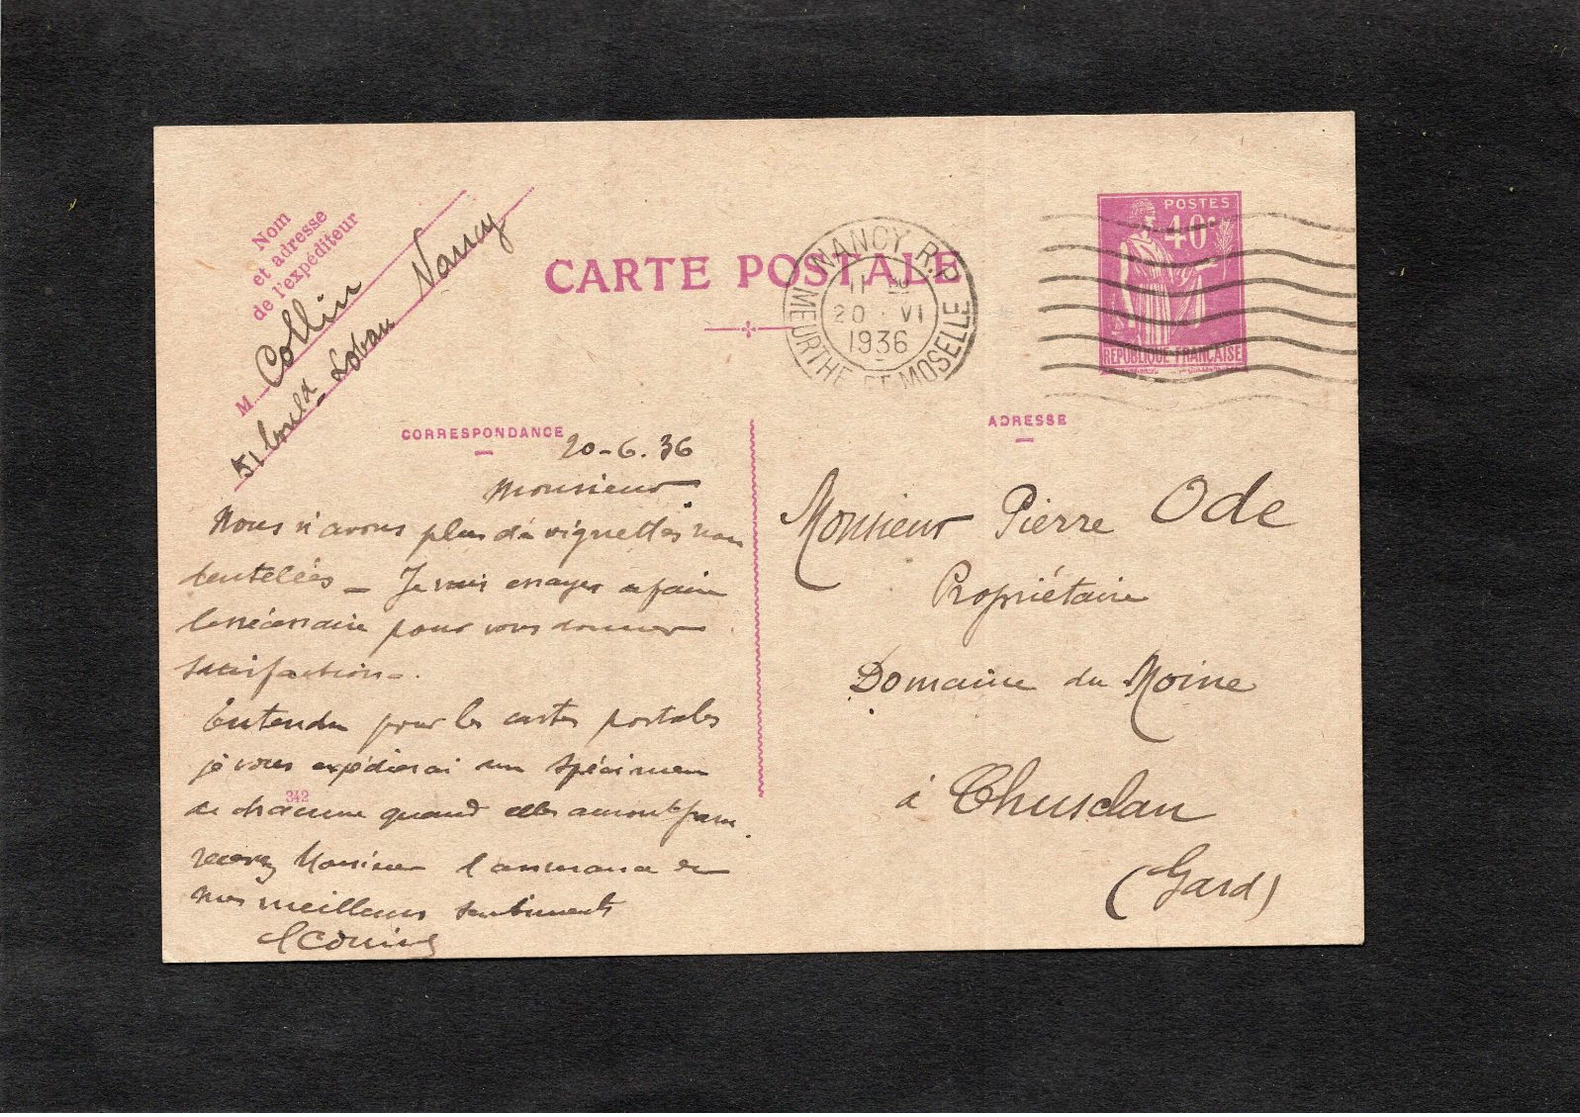 Nom
et adresse
de l'expéditeur
M. Collin
51 Boulд Lobau Nancy
CARTE POSTALE
NANCY R.P.
11 30
20 · VI
1936
MEURTHE ET MOSELLE
POSTES
40c
REPUBLIQUE FRANÇAISE
CORRESPONDANCE
20-6.36
Monsieur
Nous n'avons plus de vignettes non
dentelées _ Je vais essayer de faire
le nécessaire pour vous donner
satisfaction.
Entendu pour les cartes postales
je vous expédierai un spécimen
de chacune quand elles auront paru
342
recevez Monsieur l'assurance de
mes meilleurs sentiments
ADRESSE
Monsieur Pierre Ode
Propriétaire
Domaine du Moine
à Chusclan
(Gard)